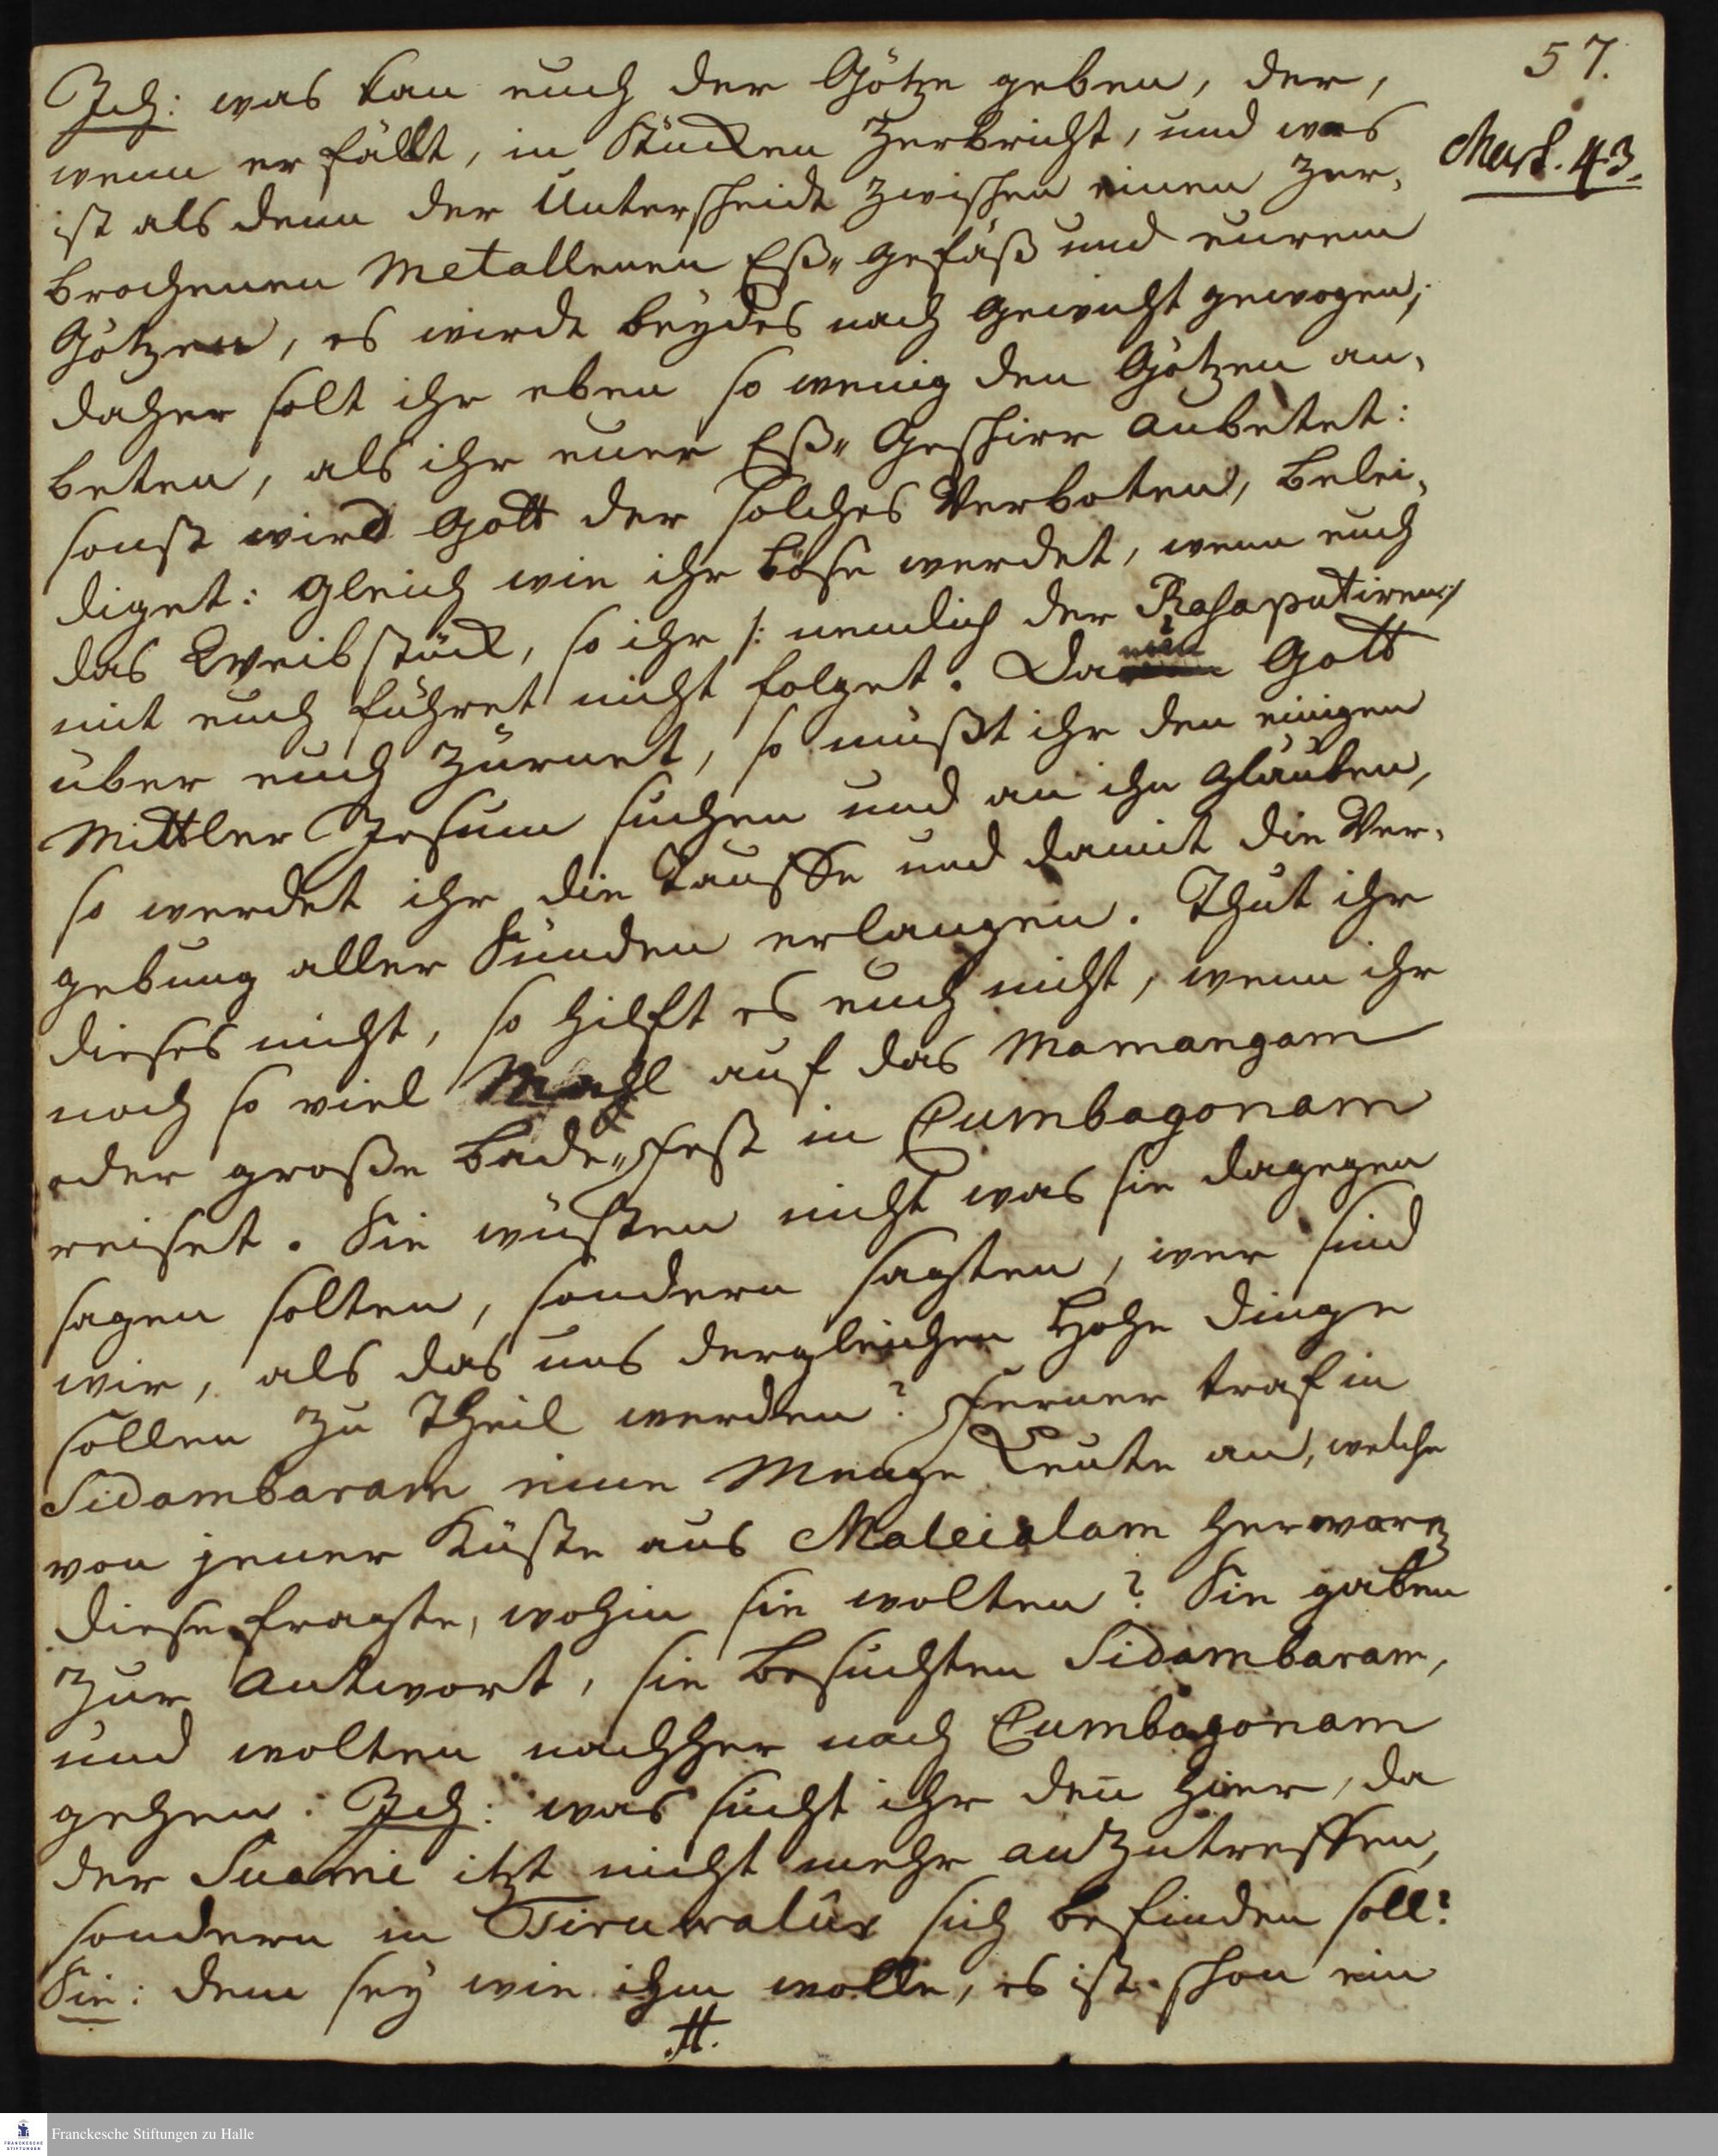 57.
Mart. 43.
Ich: was kan euch der Götze geben, der,
wenn er fällt, in Stücken zerbricht, und was
ist als denn der Unterscheidt zwischen einen zer-
brochenen Metallenen Eß- gefäß und eurem
Götzen, es wirdt beydes nach gewicht gewogen;
daher solt ihr eben so wenig den Götzen an-
beten, als ihr euer Eß- Geschirr anbetet:
sonst wird Gott der solches Verboten, belei-
diget: gleich wie ihr böse werdet, wenn euch
das Weibstück, so ihr /: nemlich der Rasaputiren:/
mit euch führet nicht folget. Da nun Gott
über euch zürnet, so müßt ihr den einigen
Mittler Jesum suchen und an ihn glauben,
so werdet ihr die Tauffe und damit die Ver-
gebung aller Sünden erlangen. Thut ihr
dieses nicht, so hilft es euch nicht, wenn ihr
noch so viel Mahl auf das Mamangam
oder große Bade- fest in Cumbagonam
reiset. Sie wüsten nicht was sie dagegen
sagen solten, sondern sagten, wer sind
wir, als das uns dergleichen Hohe dinge
sollen zu Theil werden? Ferner traf in
Sidambaram eine Menge Leute an, welche
von jener Küste aus Maleialam her waren
diese fragte, wohin sie wolten? Sie gaben
zur Antwort, sie besuchten Sidambaram,
und wolten nachher nach Cumbagonam
gehen. Ich: was sucht ihr deñ hier, da
der Suami itzt nicht mehr anzutreffen,
sondern in Tiruwalûr sich befinden soll?
Sie: dem sey wie ihm wolle, es ist schon ein
H.
Franckesche Stiftungen zu Halle
FRANCKESCHE
STIFTUNGEN